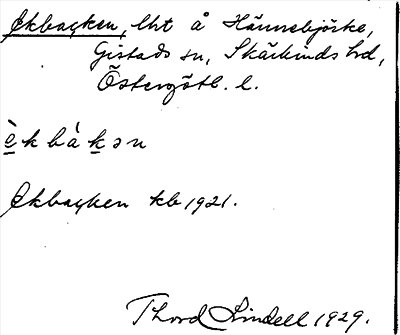 Ekbacken, lht å Hännebjörke,
Gistads sn, Skärkinds hd,
Östergötl. l.
èkbàkən
Ekbacken kb 1921.
Thord Lindell 1929.